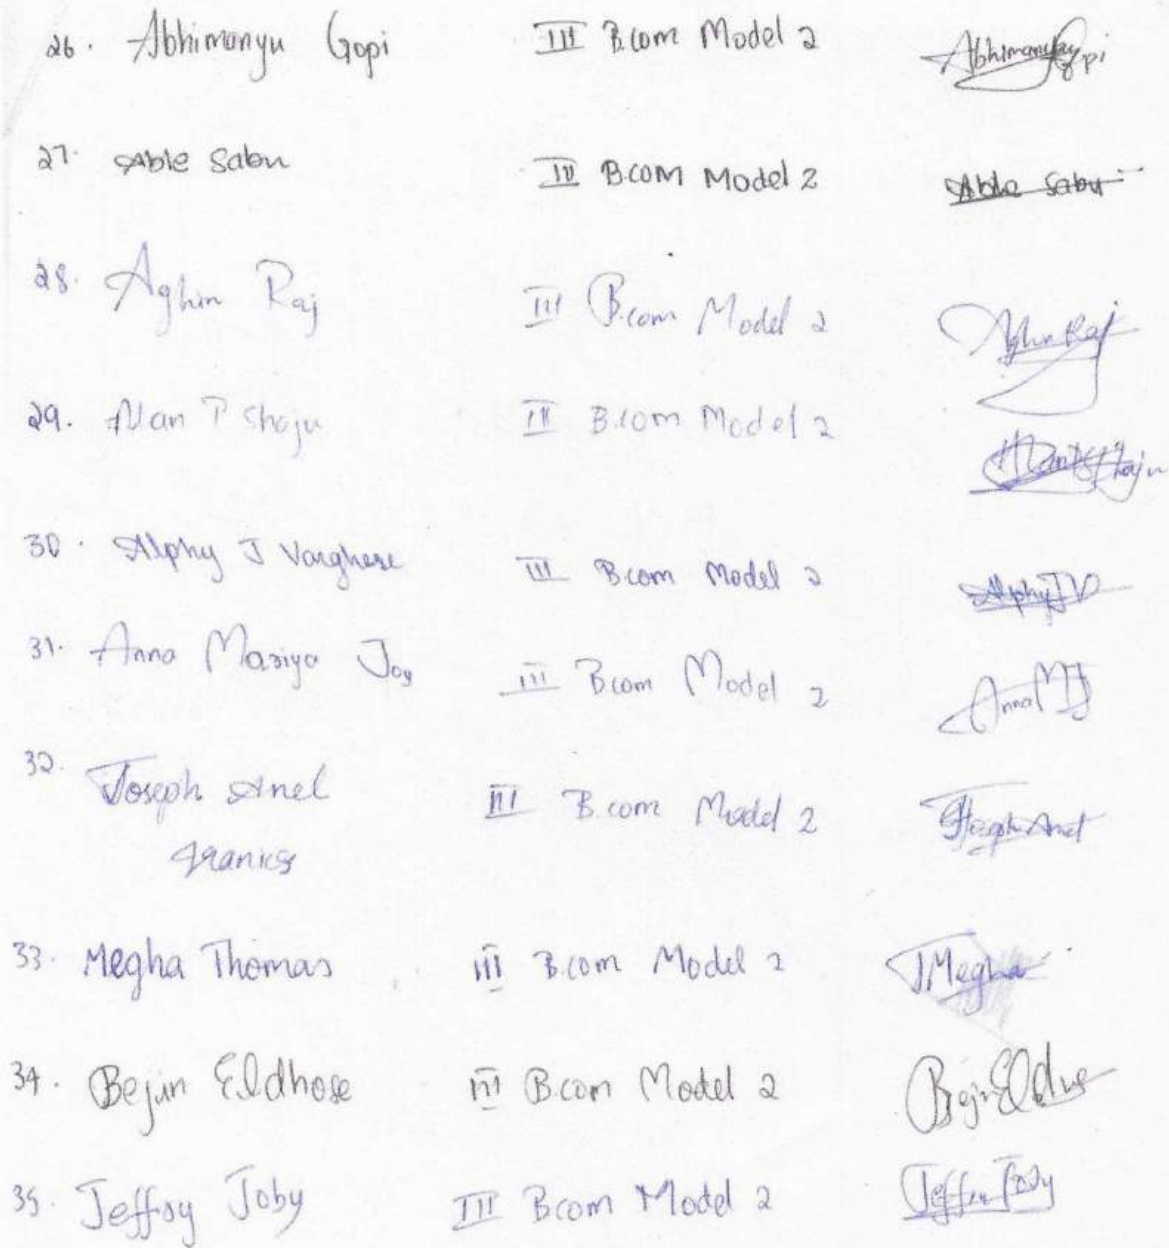 26. Abhimanyu Gopi III B.com Model 2 Abhimanyu Gopi
27. Able Sabu III B.com Model 2 Able Sabu
28. Aghin Raj III B.com Model 2 Aghin Raj
29. Alan P Shaju III B.com Model 2 Alan P Shaju
30. Alphy J Varghese III B.com Model 2 Alphy J V
31. Anna Mariya Joy III B.com Model 2 Anna M J
32. Joseph Anel III B.com Model 2
Franics
33. Megha Thomas III B.com Model 2 Megha
34. Bejin Eldhose III B.com Model 2 Bejin Eldhose
35. Jeffry Joby III B.com Model 2 Jeffry Joby